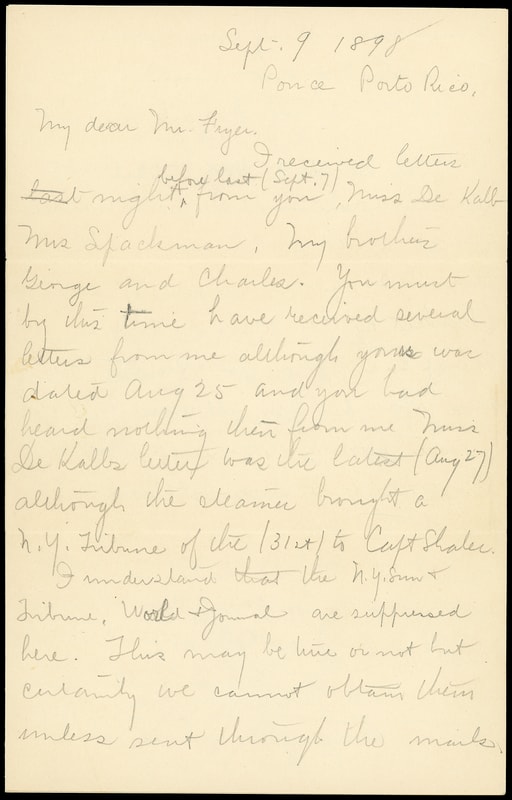 Sept. 9 1898
Ponce Porto Rico,
My dear Mr. Fryer.
I received letters
before last (Sept. 7)
last night from you, Miss De Kalb
Mrs Spackman, My brothers
George and Charles. You must
by this time have received several
letters from me although yours was
dated Aug 25 and you had
heard nothing then from me Miss
De Kalbs letter was the latest (Aug 27)
although the steamer brought a
N.Y. Tribune of the (31st) to Capt Shaler.
I understand that the N.Y. Sun &
Tribune, World & Journal are suppressed
here. This may be true or not but
certainly we cannot obtain them
unless sent through the mails.